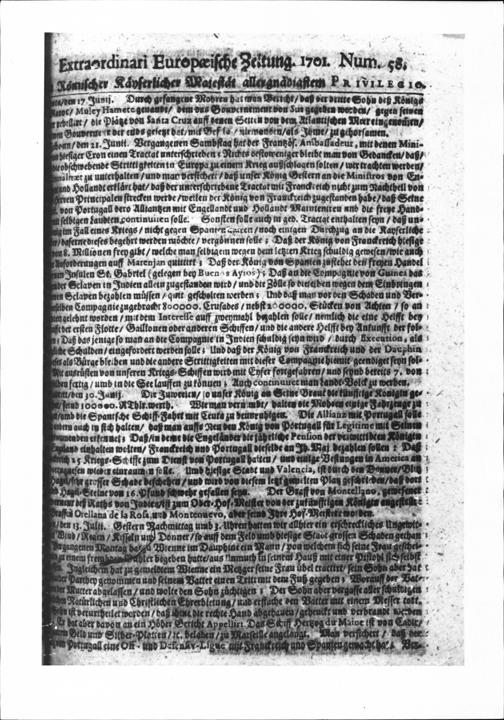 Extraordinari Europæische Zeitung. 1701. Num. 58.
Römischer Käyserlicher Majestät allergnädigstem PRIVILEGIO.
den 17 Junij. Durch gefangene Mohren hat man Bericht / daß der dritte Sohn deß Königs
Muley Hamet genandt / dem das Gouvernement von Sus gegeben worden / gegen seinen
rebellirt / die Plätze von Santa Cruz auff seiten vom dem Atlantischen Meer eingenommen /
den 21 Junij. Vergangenen Sambstag hat der Frantzös. Ambassadeur, mit denen Mini-
hiesiger Cron einen Tractat unterschrieben: Nichts destoweniger bleibt man von Gedancken / daß /
obschwebende Strittigkeiten in Europa zu einem Krieg außschlagen solten / wir trachten werden /
zu unterhalten / und man versichert / daß unser König Gestern an die Ministros von En-
und Holland erklärt hat / daß der unterschriebene Tractat mit Franckreich nicht zum Nachtheil von
Principalen strecken werde / weilen der König von Franckreich zugestanden habe / daß Seine
von Portugall dero Allianzen mit Engelland und Holland Mainteniren und die freye Hand-
selbigen Landen continuiren solle. Sonsten solle auch in ged. Tractat enthalten seyn / daß un-
im Fall eines Kriegs / nicht gegen Spanien / noch einigen Durchzug an die Käyserliche
daferne dieses begehrt werden möchte / vergönnen solle: Daß der König von Franckreich hiesige
8. Millionen frey gibt / welche man selbigen wegen dem letzten Krieg schuldig gewesen / wie auch
Anforderungen auff Marenjan quittirt: Daß der König von Spanien zustehet den freyen Handel
Insulen St. Gabriel (gelegen bey Buenos Ayros); Daß an die Compagnie von Guinea das
der Sclaven in Indien allein zugestanden wird / und die Zölle so dieselben wegen dem Einbringen
Sclaven bezahlen müssen / gut gescholten werden: Und daß man vor den Schaden und Ver-
selben Compagnie zugebracht 800000. Crusades / nebst 200000. Stücken von Achten / so an
gelehnt worden / mit dem Interesse auff zweymahl bezahlen solle / nemlich die eine Helfft bey
der ersten Flotte / Gallionen oder anderen Schiffen / und die andere Helfft bey Ankunfft der fol-
Daß das jenige so man an die Compagnie in Indien schuldig seyn wird / durch Execution, als
Schulden / eingefordert werden solle: Und daß der König von Franckreich und der Dauphin
als Bürge bleiben und die andere Strittigkeiten mit dieser Compagnie geendiget seyn sol-
außrüsten von unseren Kriegs-Schiffen wird mit Eyfer fortgefahren / und seynd bereits 7. von
fertig / umb in die See lauffen zu können: Auch continuiret man Land-Volck zu werben.
den 30. Junij. Die Juwelen / so unser König an Seine Braut die künfftige Königin ge-
seynd 100000. Rthlr. werth. Wie man vernimbt / halten die Mohren einige Fahrzeuge zu
und die Spanische Schiff-Fahrt mit Ceuta zu beunruhigen. Die Allianz mit Portugall solle
andern auch in sich halten / daß man auffs Neu den König von Portugall für Legitime mit Seinen
erkennet: Daß / in dem die Engeländer die jährliche Pension der verwittibten Königin
Engeland einhalten wolten / Franckreich und Portugall dieselbe an Ihr Maj. bezahlen sollen: Daß
15 Kriegs-Schiffe zum Dienst von Franckreich halten / und einige Vestungen in America an
wieder einraumen solle. Und hiesige Statt und Valencia, ist durch den Donner / Blitz
Hagel sehr grosser Schade beschehen / und wird von diesem letzt gemelten Platz geschrieben / daß dort
Hagel-Steine von 16. Pfund schwehr gefallen seyn. Der Graff von Montellano, gewesener
deß Raths von Indien / ist zum Ober-Hof-Meister von der zukünfftigen Königin angestellt
Orellana de la Rosa und Montenuevo, aber seind Ihre Hof-Meister worden.
den 13. Julii. Gestern Nachmittag umb 3. Uhren hatten wir allhier ein erschreckliches Ungewit-
Wind / Regen / Kisseln und Donner / so auff dem Feld und hiesige Stadt grossen Schaden gethan
Vergangenen Montag hat zu Vienne im Dauphine ein Mann / von welchem sich seine Frau geschei-
Ingleichem hat zu gemeldtem Vienne ein Metzger seine Frau übel tractirt / sein Sohn aber hat
Parthey genommen und seinem Vatter einen Tritt mit dem Fuß gegeben; Worauff der Vat-
Mutter abgelassen / und wolte den Sohn züchtigen: Der Sohn aber vergasse aller schuldigen
Natürlichen und Christlichen Ehrerbietung / und erstache den Vatter mit einem Messer todt,
verurtheilet worden / daß ihme die rechte Hand abgehauen / gehenckt und verbrandt werden
hat aber davon an ein Höher Gericht Appellirt. Das Schiff Hertzog du Maine ist von Cadix,
Geld und Silber-Platten / rc. beladen / zu Marseille angelangt. Man versichert / daß der
Portugall eine Off- und Defensiv-Ligue mit Franckreich und Spanien gemacht hat.